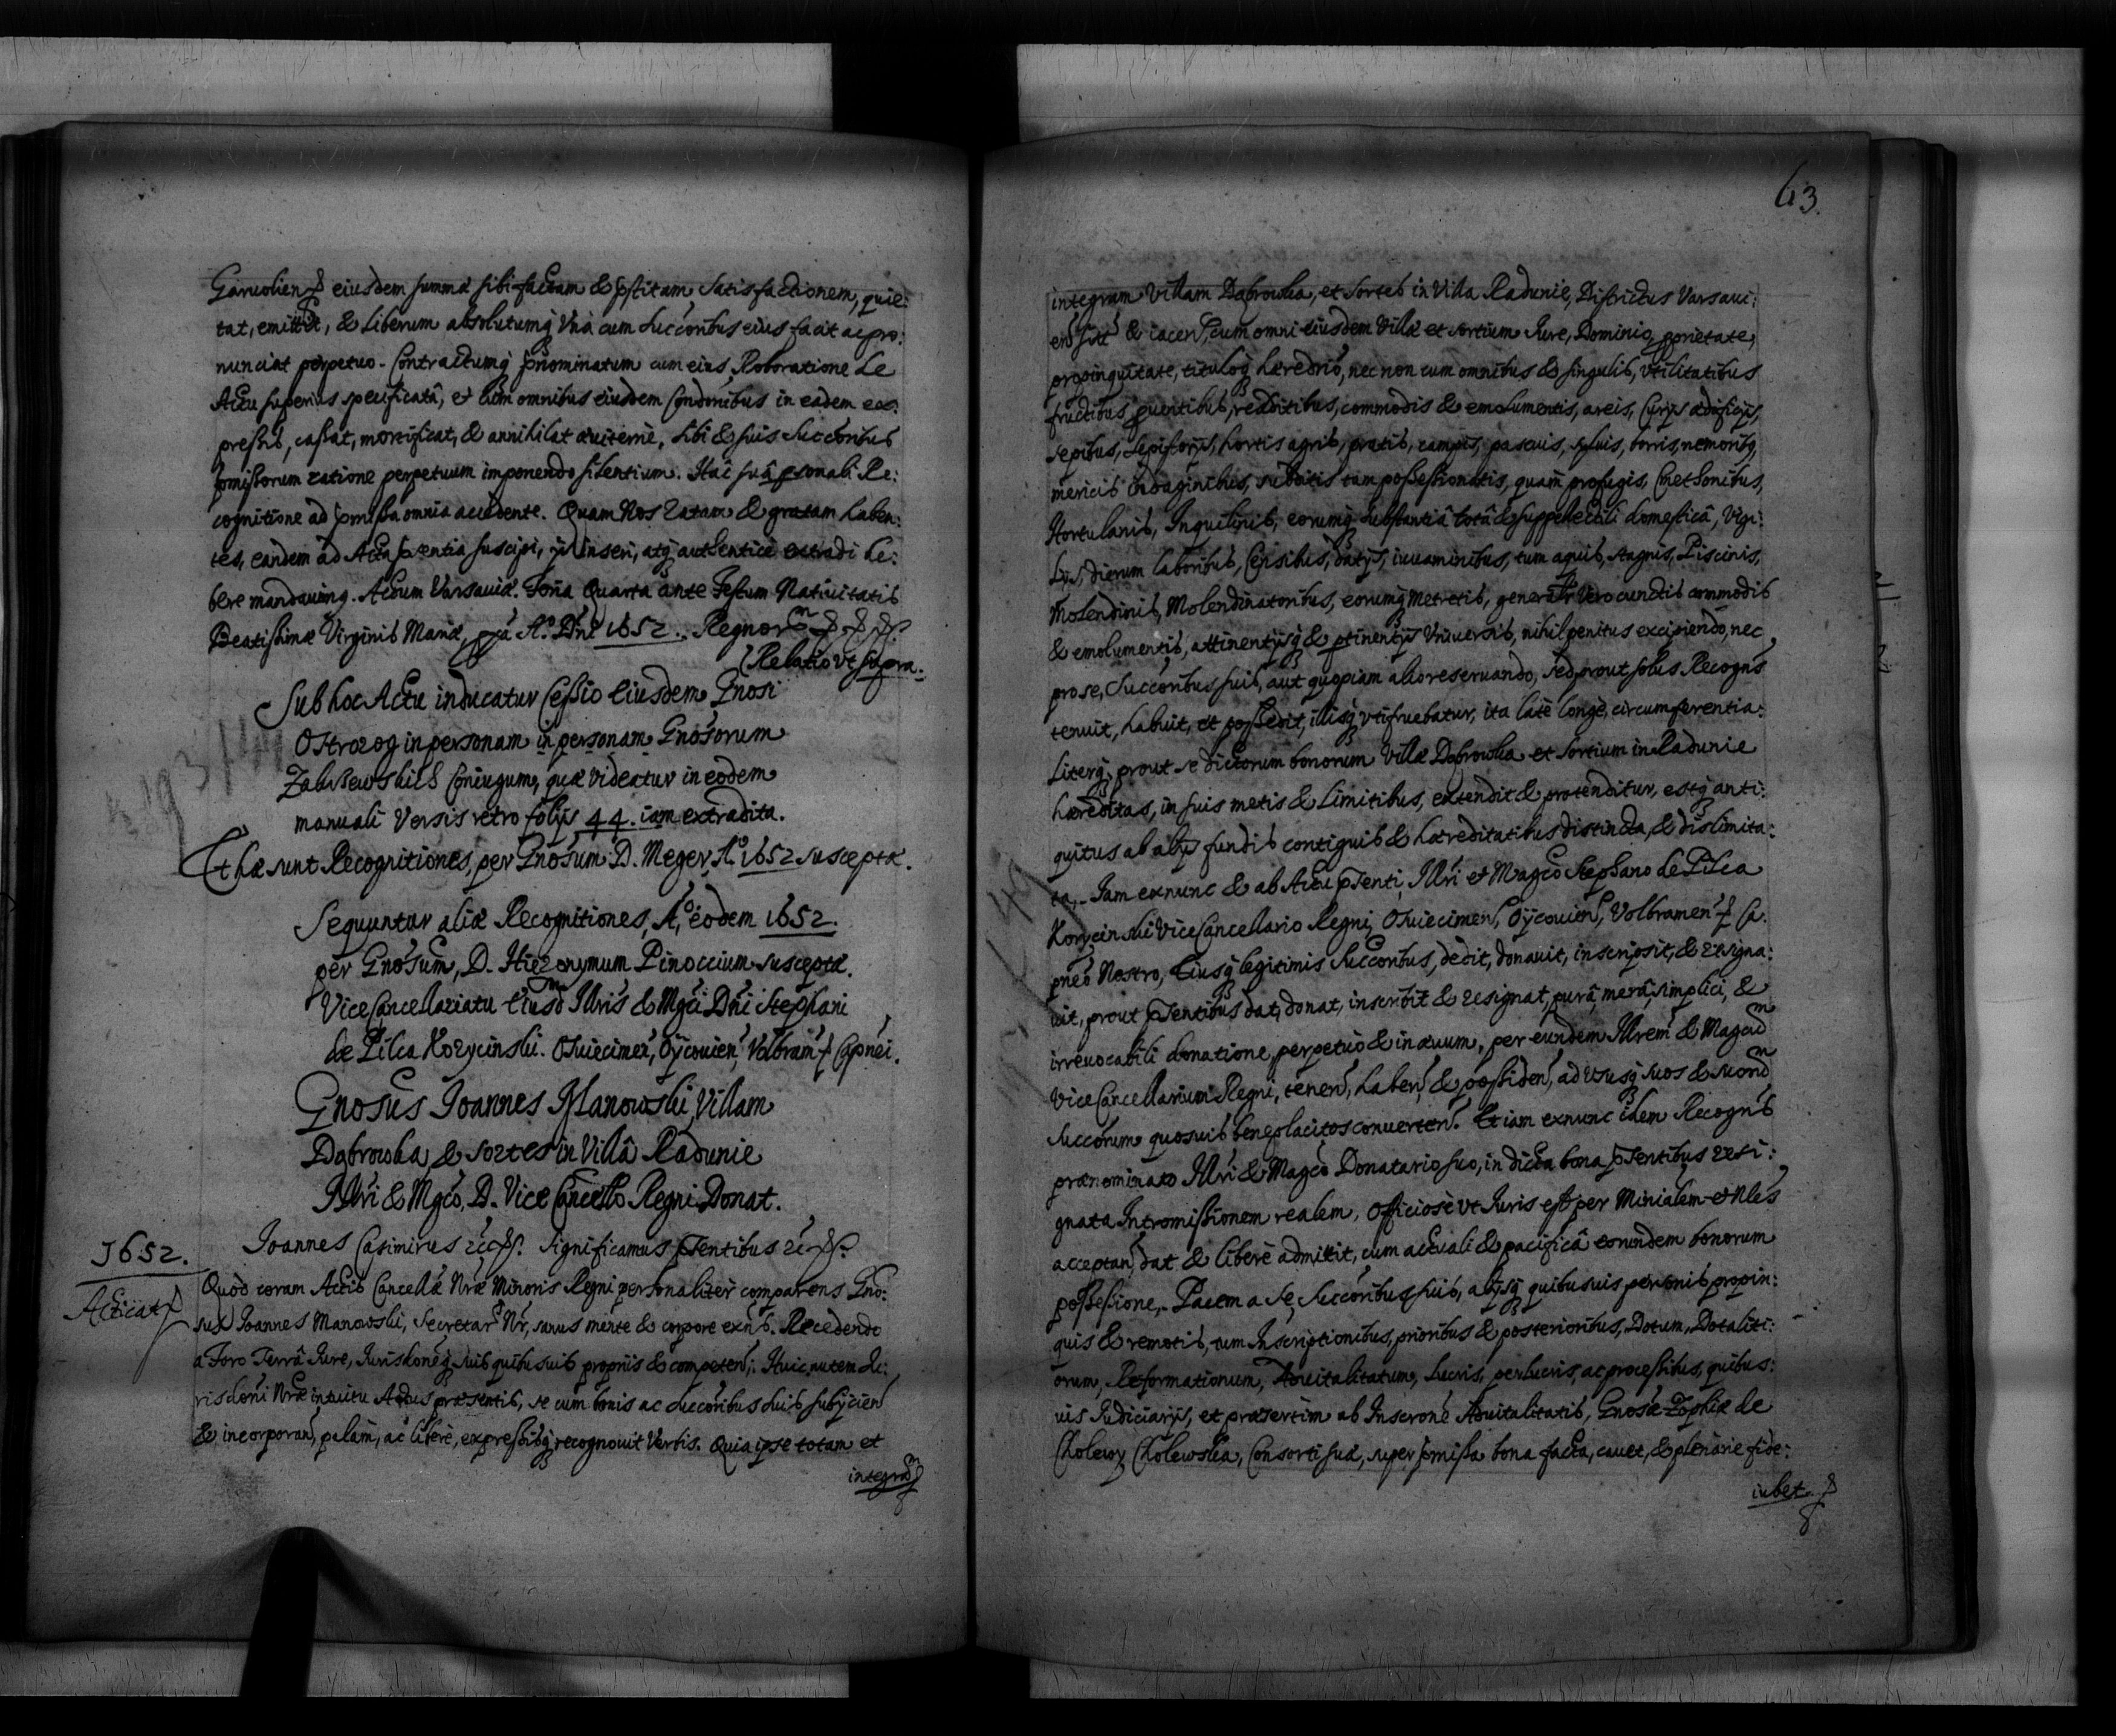 Garwolien eiusdem summæ sibi factam & pstitam satisfactionem, quie:
tat, emittit, & liberum absolutumq Vnà cum Succoribus eius facit ac pro:
nunciat perpetuo. Contractumq pnominatum cum eius Roboratione de
Actu superius specificatâ, et cum omnibus eiusdem Condonibus in eadem ex:
pressis, cassat, mortificat, & annihilat æuiternè, sibi & suis Succoribus
pmissorum ratione perpetuum imponendo silentium. Hac suâ psonali Re:
cognitione ad pmissa omnia accedente. Quam Nos ratam & gratam haben:
tes, eandem ad Acta psentia suscipi, inseri, atq authenticè extradi de:
bere mandauimq. Actum Varsauiæ. Feria Quarta ante Festum Natiuitatis
Beatissimæ Virginis Mariæ, A. Dni 1652. Regnor
Relatio vt supra.
Sub hoc Actu inducatur Cessio Eiusdem Gnosi
Ostrorog in personam in personam Gnosorum
Coniugum, quæ videatur in eodem
manuali Versis retro folijs 44. iam extradita.
Et hæ sunt Recognitiones, per Gnosum D. Meger, A. 1652 susceptæ.
Sequuntur aliæ Recognitiones, A, eodem 1652.
per Gnosum, D. Hieronymum Pinoccium susceptæ.
Vice Cancellariatu Eiusd Illris & Mgci Dni Stephani
de Pilca Korycinski. Osuiecimen, Oycouien, Volbram Capnei.
Gnosus Joannes Manowski, Villam
Dąbrowka & sortes in Villâ Radunie
Illri & Mgco, D. Vice Cancello Regni Donat.
1652.
Acticat
Joannes Casimirus Significamus psentibus
Quòd coram Actis Cancellæ Nræ Minoris Regni personaliter comparens Gno:
sus Joannes Manowski, Secretar Nr, sanus mente & corpore exns. Recedendo
a Foro Terrâ Jure, Jurisdoneq suis quibusuis propriis & competen; Huic autem Ju:
risdoni Nræ intuitu Actus præsentis, se cum bonis ac Succoribus suis subijcien
& incorporan, palam, ac liberè, expressisq recognouit Verbis. Quia ipse totam et
integra
63.
integram Villam Dąbrowka, et Sortes in Villa Radunie, Districtus Varsaui:
en sit & iacen, cum omni eiusdem Villæ et sortium Jure, Dominio, pprietate,
propinquitate, tituloq hæredrio, nec non cum omnibus & singulis, vtilitatibus
fructibus prouentibus, redditibus, commodis & emolumentis, areis, Curijs ædificijs,
sepibus, sepiscorijs, hortis agris, pratis, campis, pascuis, syluis, borris, nemoribq,
mericis indaginibus, subditis tam possessionatis, quàm profugis, Cmethonibus,
Hortulanis, Inquilinis, eorumq substantiâ totâ & suppellectili domesticâ, Vigi:
lijs, dierum laboribus, Censibus, datijs, iuuaminibus, tum aquis, stagnis, Piscinis,
Molendinis, Molendinatoribus, eorumq Metretis, generalr Vero cunctis commodis
& emolumentis, attinentijsq & ptinentijs Vniuersis, nihil penitus excipiendo, nec
pro se, Succoribus suis, aut quopiam alio reseruando, sed prout solus Recogns
tenuit, habuit, et possedit, illisq vtifruebatur, ita latè longè, circumferentia:
literq, prout se dictorum bonorum Villæ Dąbrowka et sortium in Radunie
hæreditas, in suis metis & Limitibus, extendit & protenditur, estq anti:
quitus ab alijs fundis contiguis & hæreditatibus distincta, & dislimita:
ta. Iam exnunc & ab Actu psenti, Illri et Magco Stephano de Pilca
Korycinski Vice Cancellario Regni, Osuiecimen, Oycouien, Volbramen Ca:
pneo Nostro, Eiusq legitimis Succoribus, dedit, donauit, inscripsit, & resigna:
uit, prout psentibus dat, donat, inscribit & resignat, purâ, merâ, simplici, &
irreuocabili donatione, perpetuò & in æuum, per eundem Illrem & Magcum
Vice Cancellarium Regni, tenen, haben, & possiden, ad Vsusq suos & suorum
Succorum quosuis beneplacitos conuerten. Et iam exnunc idem Recogns
prænominato Illri & Magco Donatario suo, in dicta bona psentibus resi:
gnata Intromissionem realem, Officiosè vt Juris est per Minialem et Nles
acceptan, dat & liberè admittit, cum actuali & pacificâ eorundem bonorum
possessione. Pacem a se, Succoribus suis, alijsq quibusuis personis propin:
quis & remotis, tum Inscriptionibus, prioribus & posterioribus, Dotum, Dotaliti:
orum, Reformationum, Aduitalitatum, Lucris, perlucris, ac processibus, quibus:
uis Judiciarijs, et præsertim ab Inscrone Aduitalitatis, Gnosæ Zophiæ de
Cholewy Cholewska, Consorti suæ, super pmissa bona facta, cauet, & plenarie fide:
iubet